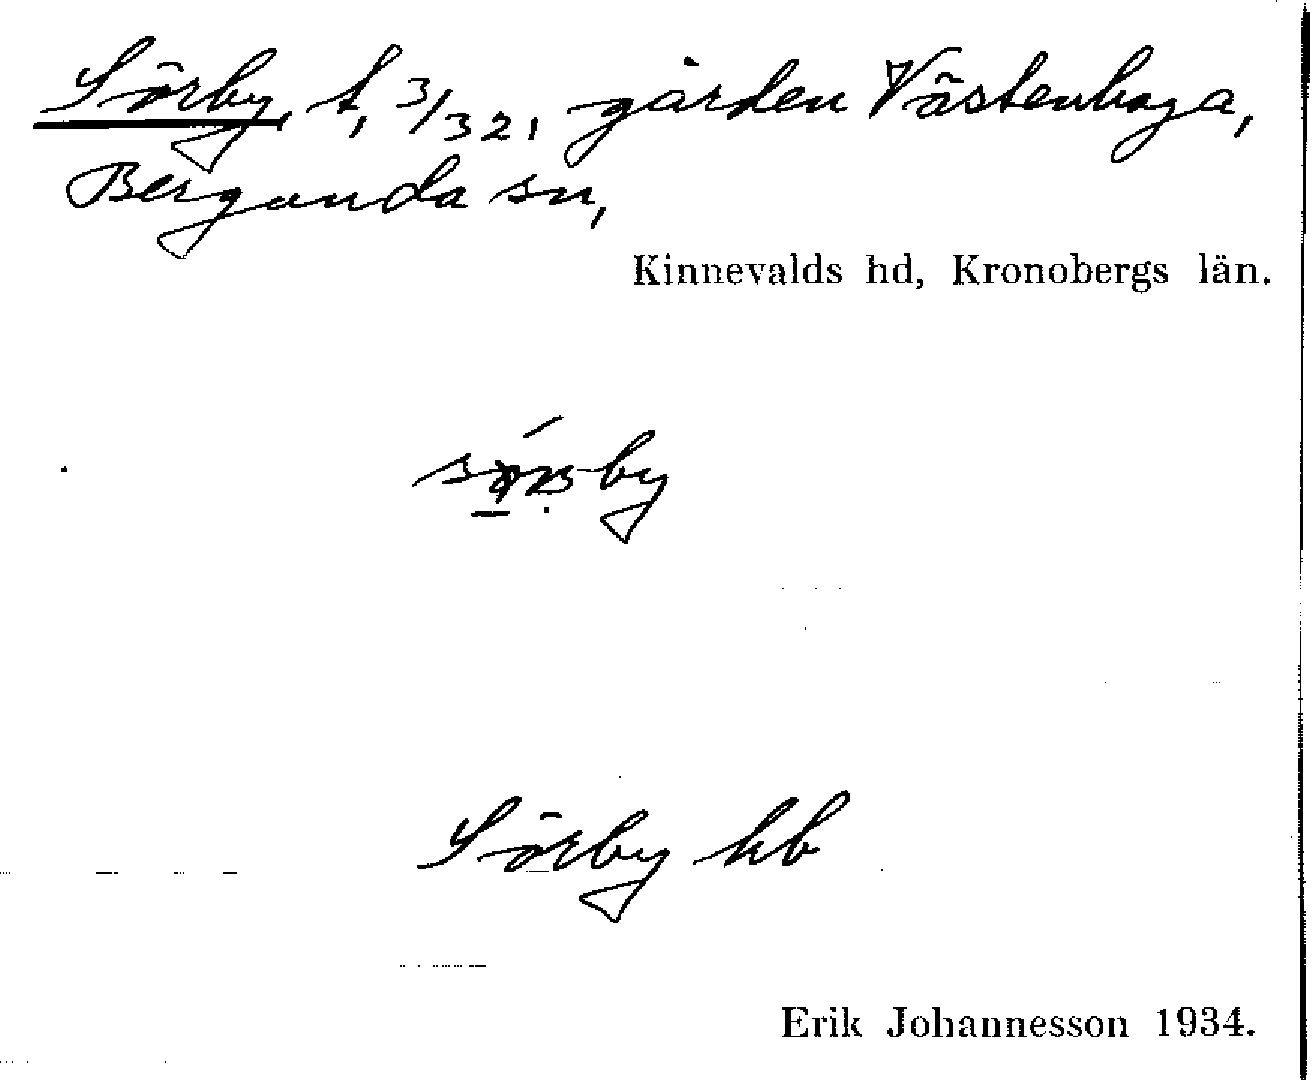 Sörby, t, 3/32, gården Västenhaga,
Bergunda sn,
Kinnevalds hd, Kronobergs län.
Sörby hb
Erik Johannesson 1934.